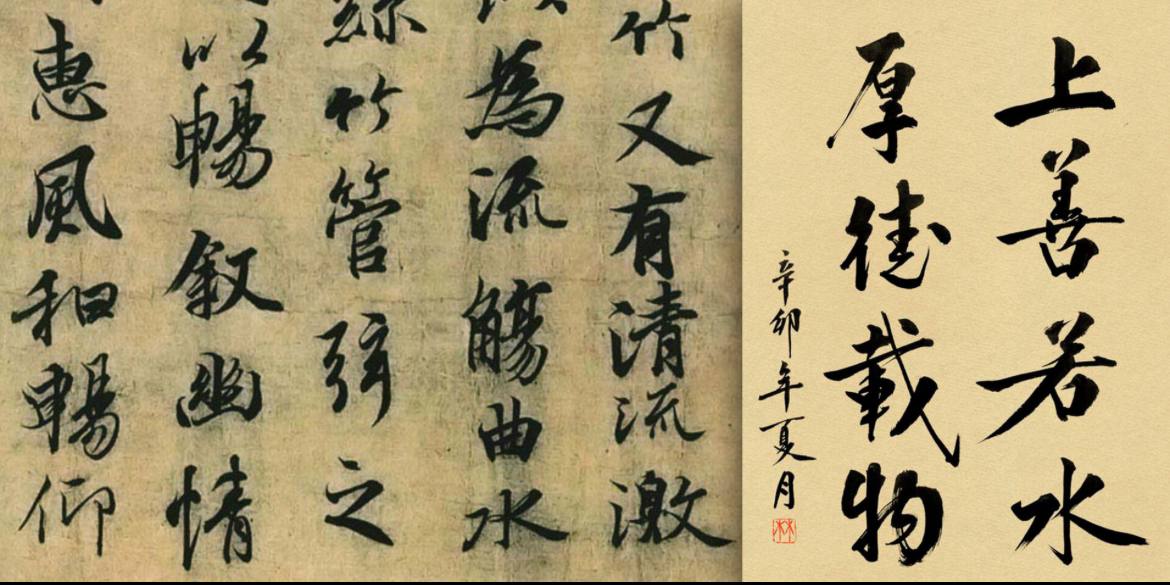 上善若水
厚德載物
辛卯年夏月
竹又有清流激
為流觴曲水
絲竹管弦之
以暢叙幽情
惠風和暢仰